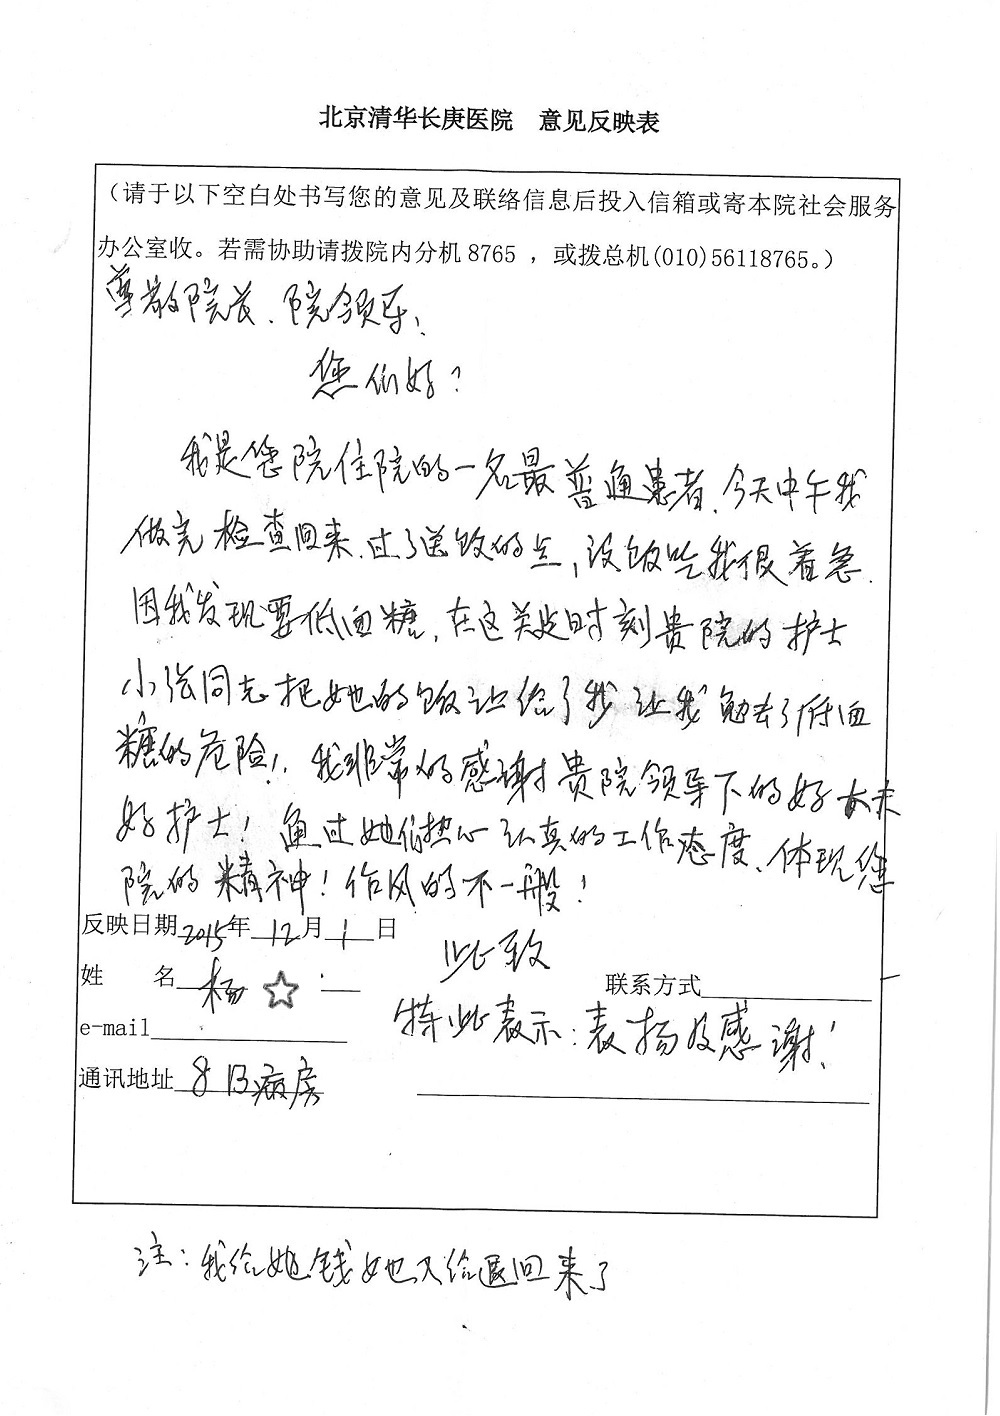 北京清华长庚医院 意见反映表
（请于以下空白处书写您的意见及联络信息后投入信箱或寄本院社会服务
办公室收。若需协助请拨院内分机8765 ，或拨总机(010)56118765。）
尊敬院长、院领导：
您们好？
我是您院住院的一名最普通患者，今天中午我
做完检查回来，过了送饭的点，没饭吃我很着急，
因我发现要低血糖，在这关键时刻贵院的护士
小张同志把她的饭让给了我让我勉去了低血
糖的危险！我非常的感谢贵院领导下的好大夫
好护士！通过她们热心认真的工作态度、体现您
院的精神！作风的不一般！
反映日期2015年12月1日
此致
姓 名 杨☆
联系方式
特此表示：表扬及感谢！
e-mail
通讯地址 8B病房
注：我给她钱她又给退回来了